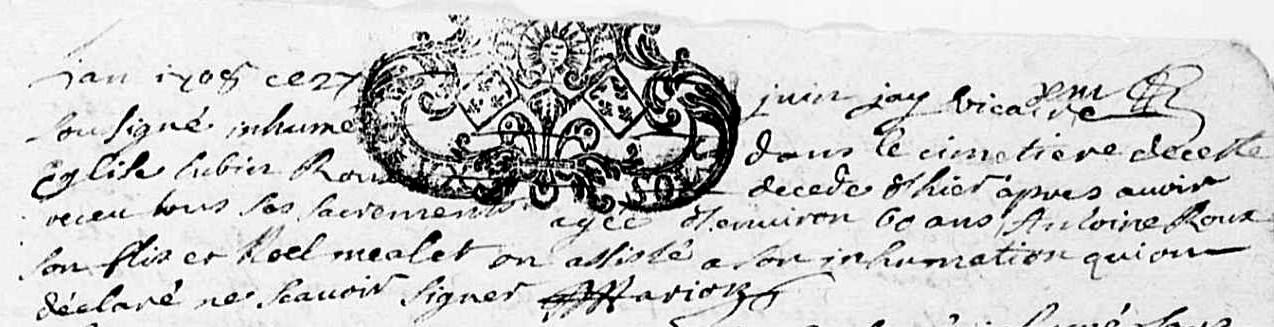 lan 1708 ce 27 juin jay vicaire
soussigné inhumé dans le cimetiere de cette
Eglise Aubin Roux decedé d'hier apres avoir
receu tous ses sacrements agée d'environ 60 ans Antoine Roux
son fils et Noel mealet on assisté a son inhumation qui on
déclaré ne scavoir signer Marion